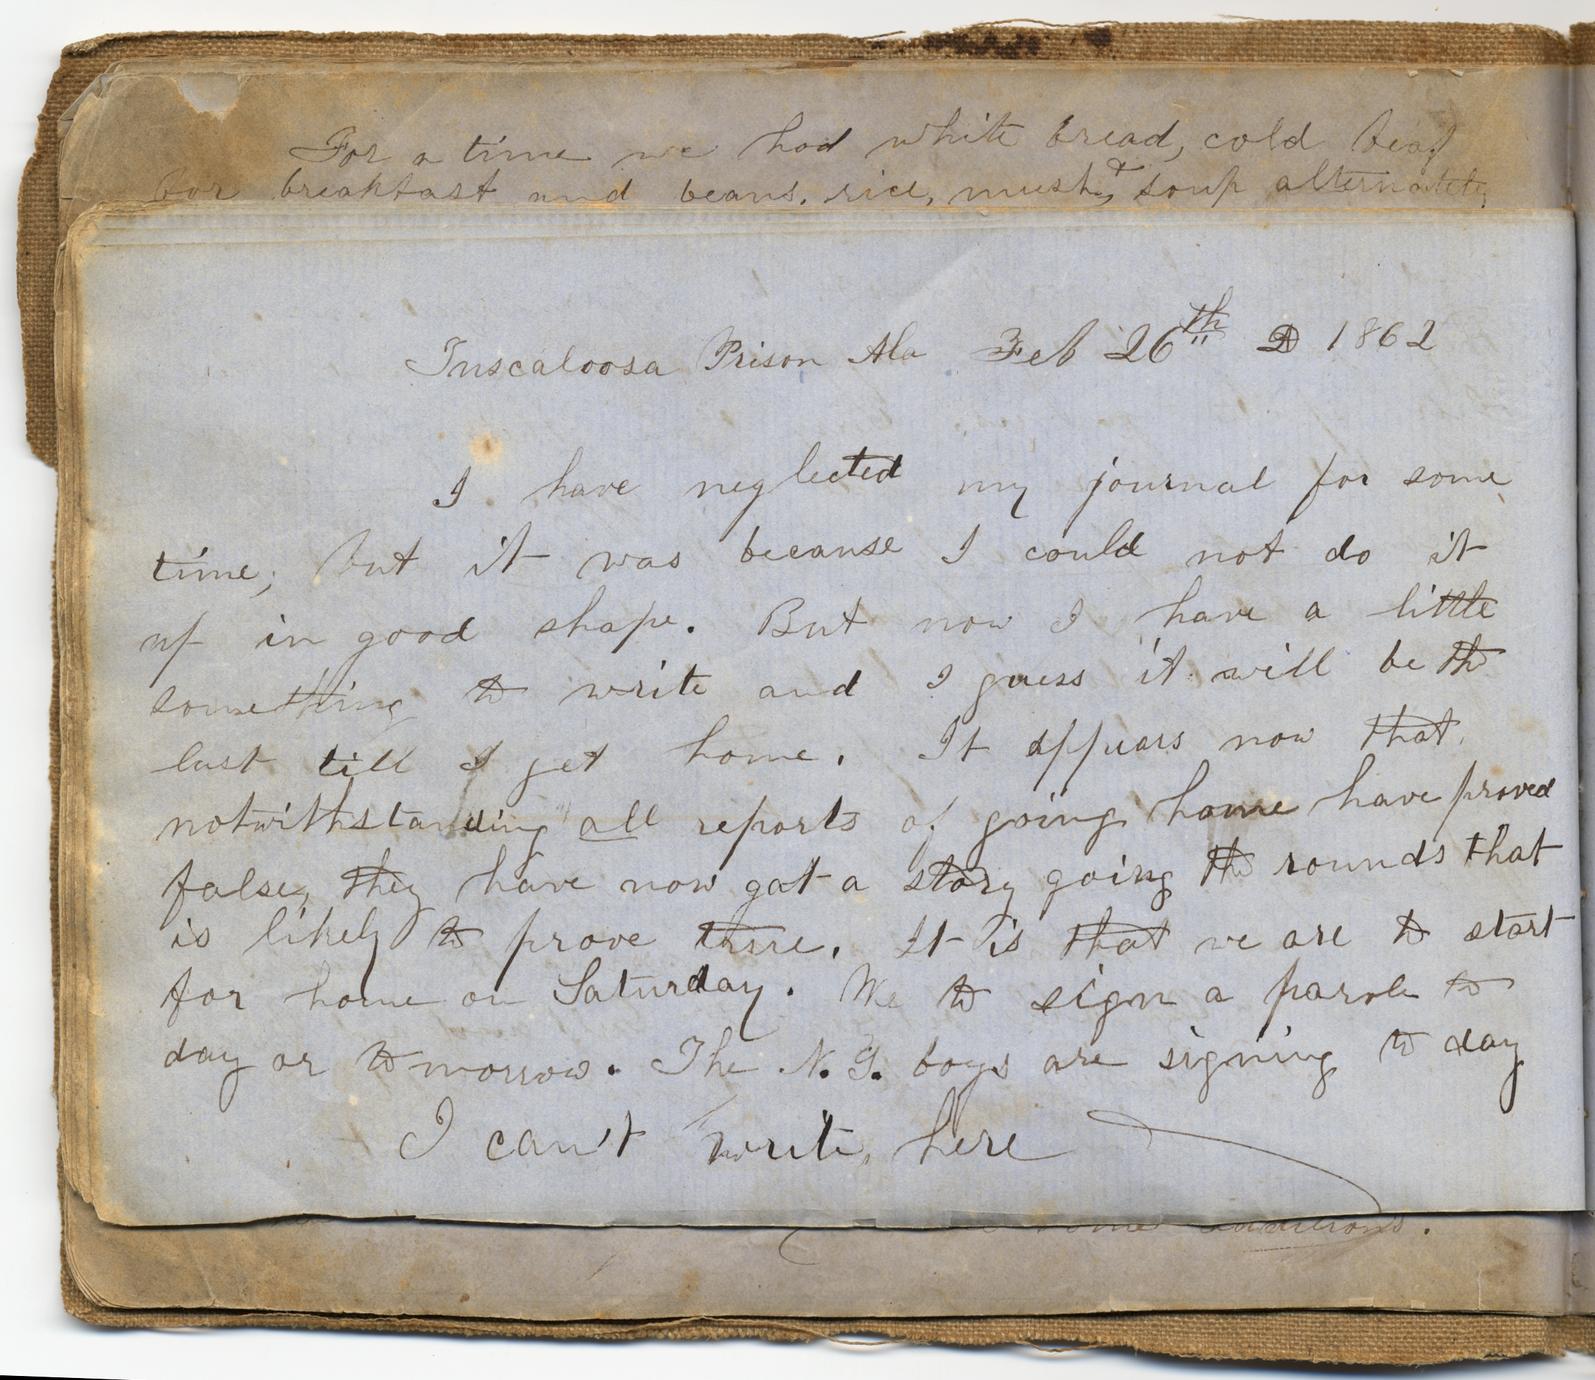 For a time we had white bread, cold beef
for breakfast and beans, rice, mush, & soup alternately
Tuscaloosa Prison Ala Feb 26th 1862
I have neglected my journal for some
time; but it was because I could not do it
up in good shape. But now I have a little
something to write and I guess it will be the
last till I get home. It appears now that
notwithstanding all reports of going home have proved
false, they have now got a story going the rounds that
is likely to prove true. It is that we are to start
for home on Saturday. We to sign a parole to
day or tomorrow. The N.Y. boys are signing to day
I can't write here
some additions.